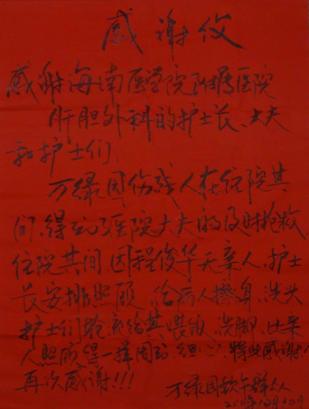 感谢信
感谢海南医学院附属医院
肝胆外科的护士长、大夫
和护士们
万绿园伤残人在住院其
间，得到了医院大夫的及时抢救
住院其间，因程俊华无亲人，护士
长安排照顾，给病人擦身、洗头
护士们轮流给其喂饭、洗脚、比亲
人照顾得一样周到细心，特此感谢！
再次感谢!!!
万绿园